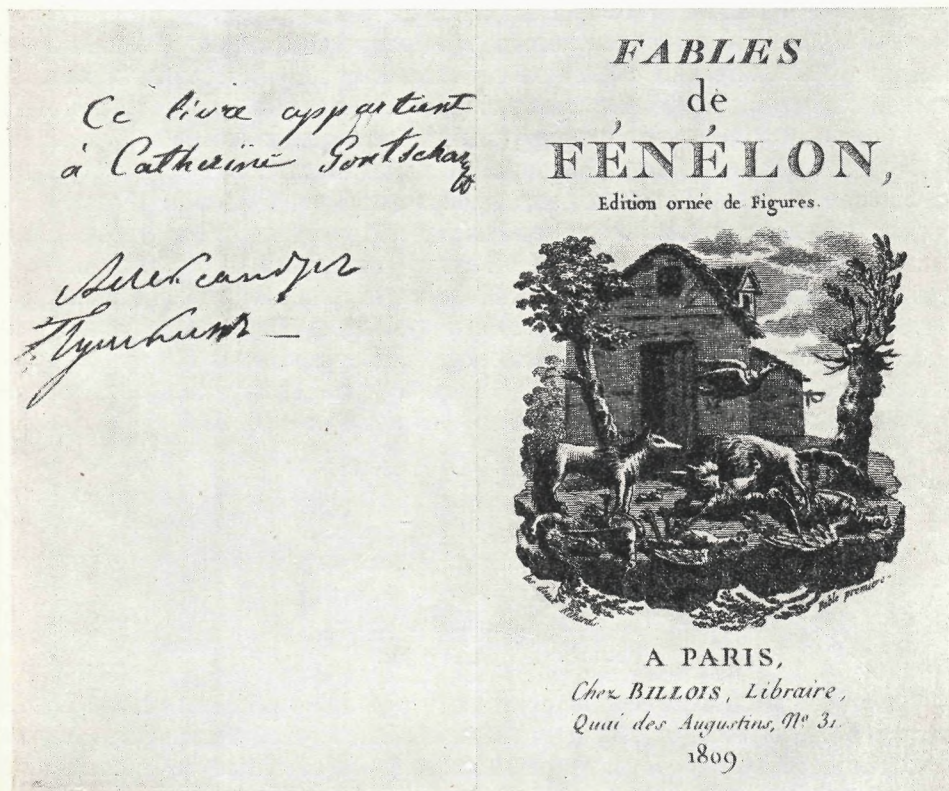 Ce livre appartient
à Catherine Gontscharoff
Александръ
Пушкинъ
FABLES
de
FÉNÉLON,
Edition ornée de Figures.
Fable premiere.
A PARIS,
Chez BILLOIS, Libraire,
Quai des Augustins, Nº 31.
1809